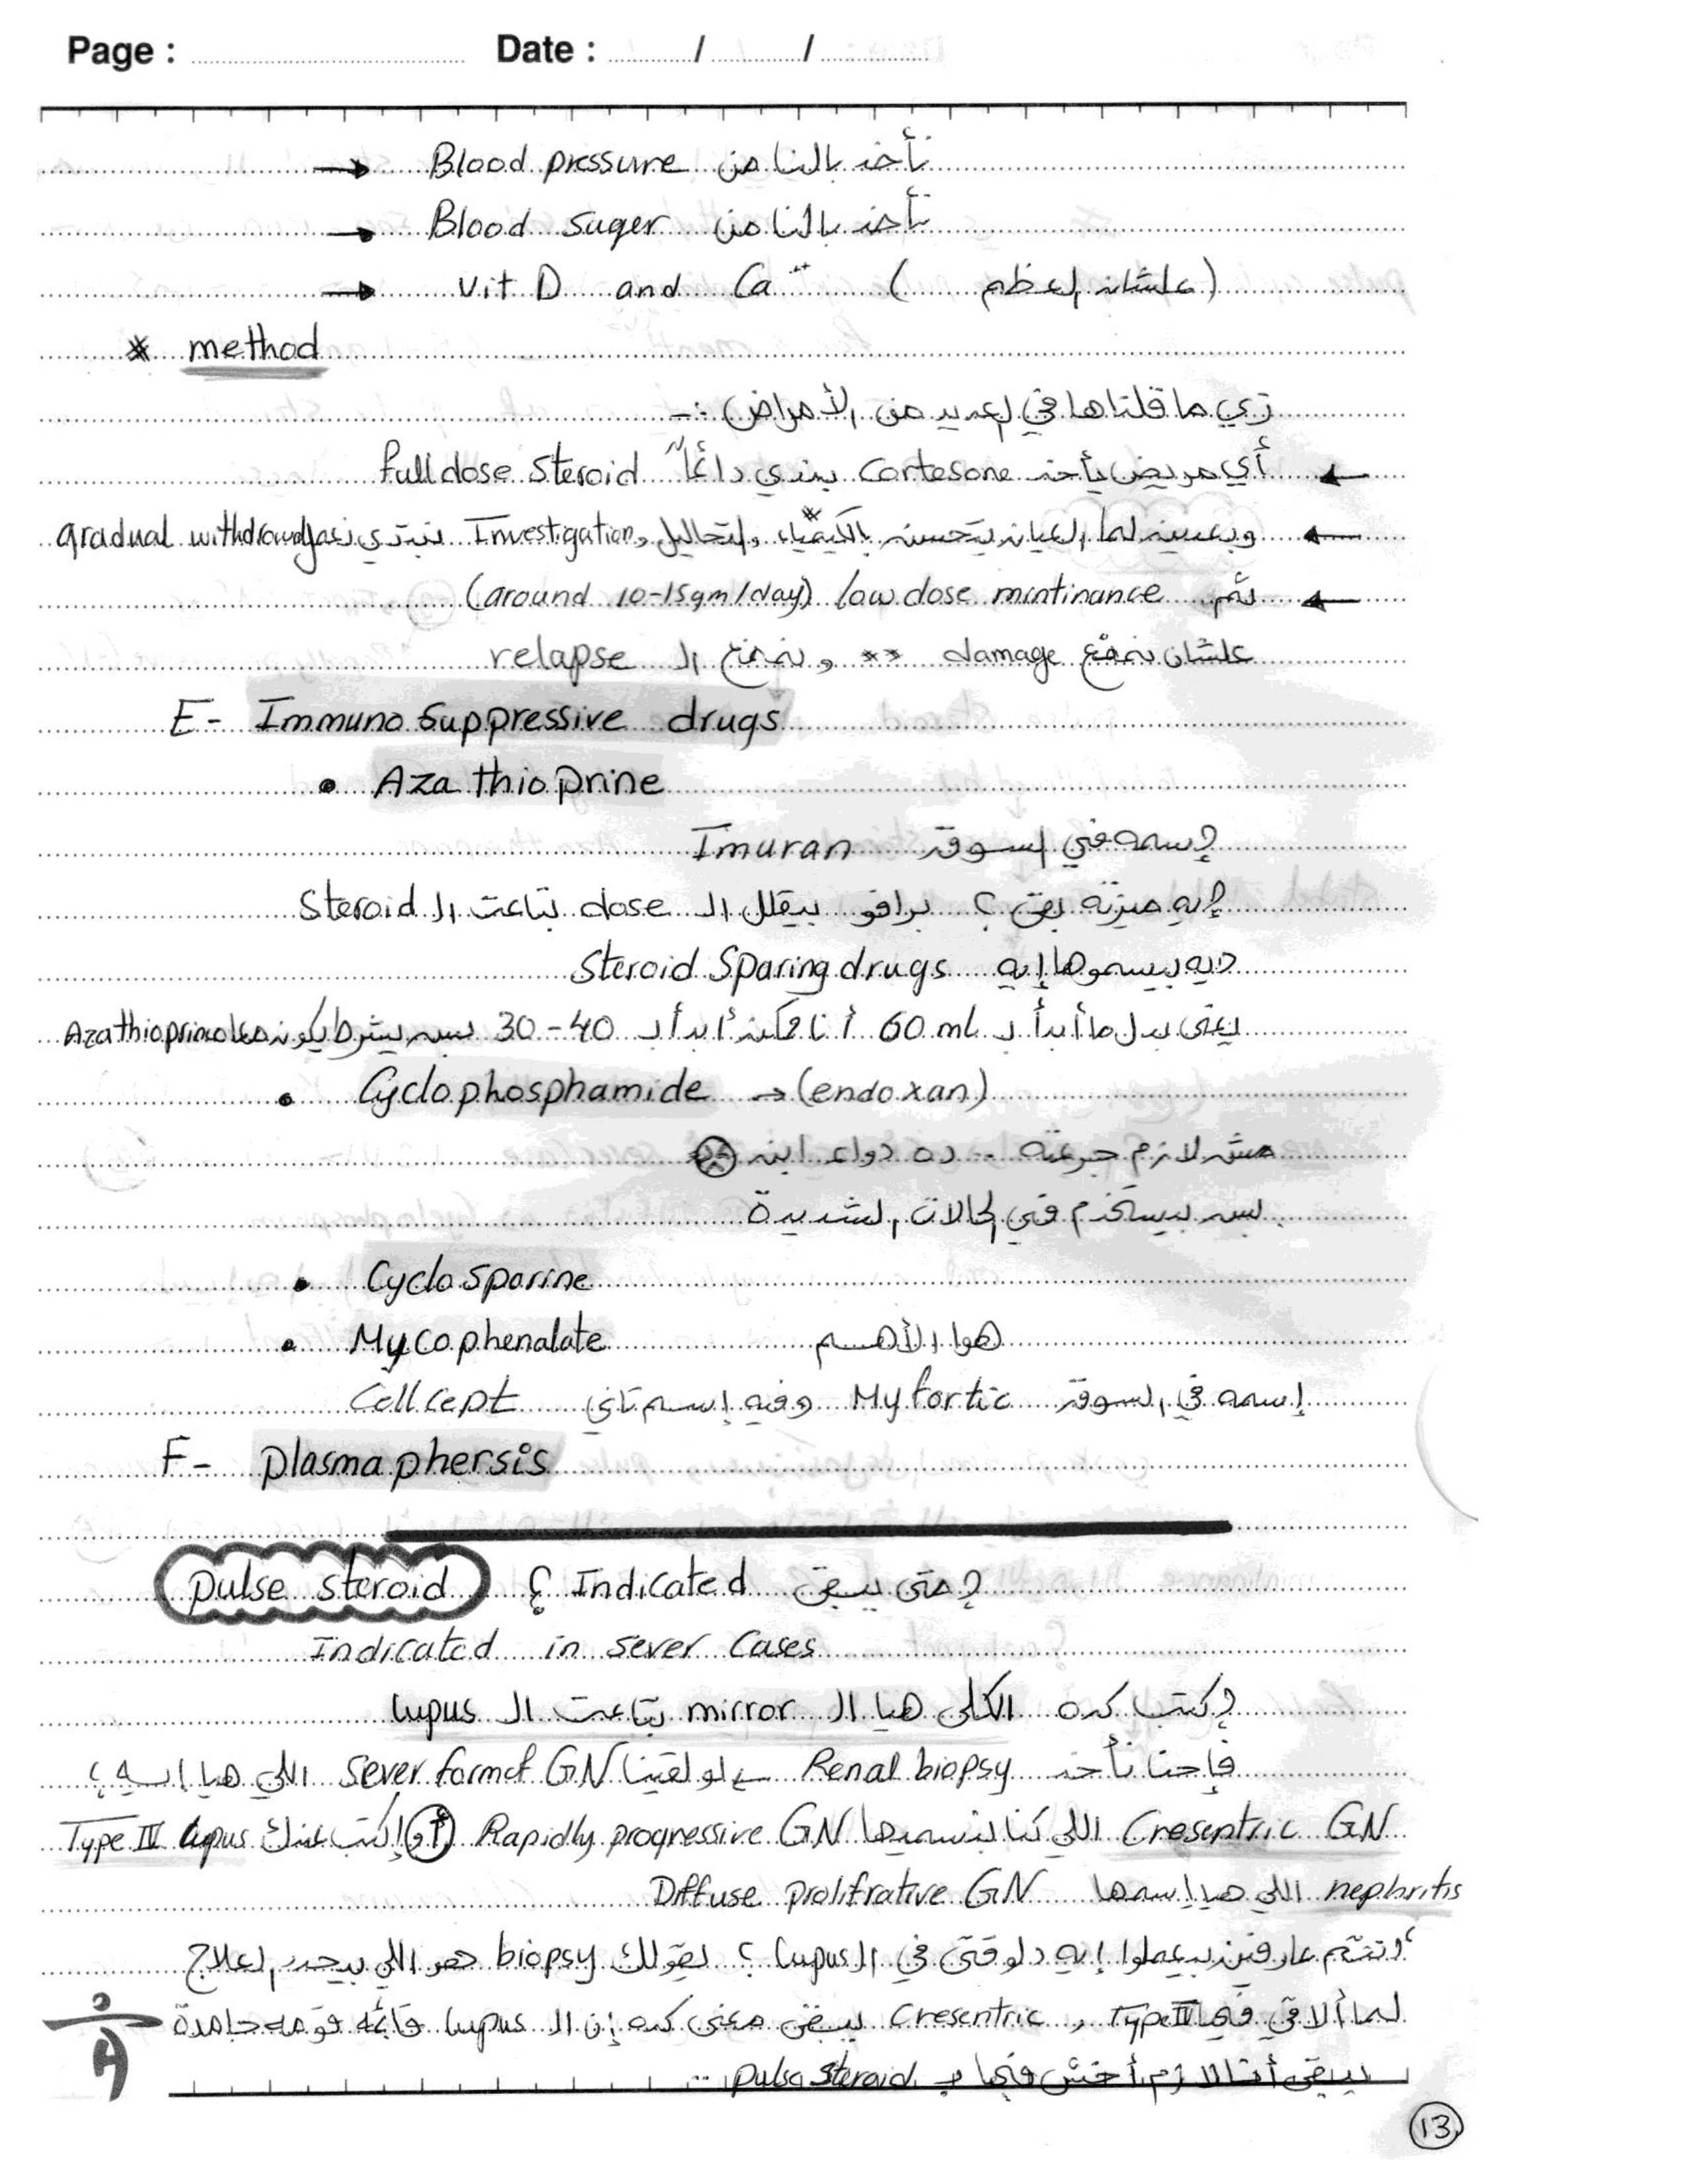 Page : Date : / /
→ Blood pressure نأخد بالنا من
→ Blood suger نأخد بالنا من
→ vit D and Ca⁺⁺ (علشان العظم)
* method
زي ما قلناها في العديد من الأمراض :-
← أي مريض يأخد cortesone يبتدي دائماً full dose steroid
← وبعدين لما العيان يتحسن بالكيمياء والتحاليل و Investigation نبتدي نعمل gradual withdrowal
← ثم low dose mintinance (around 10-15 gm/day)
علشان نمنع damage ** ونمنع الـ relapse
E- Immuno suppressive drugs
• Aza thioprine
إسمه في السوق Imuran
إيه ميزته بقى ؟ برافو بيقلل الـ dose بتاعت الـ Steroid
ديه بيسموها إيه Steroid Sparing drugs
يعنى بدل ما أبدأ بـ 60 mL أنا ممكن أبدأ بـ 40 - 30 بس بشرط يكون معاه Azathioprine
• Cyclophosphamide → (endoxan)
مش لازم جرعته .. ده دواء ابن
بس بيستخدم في الحالات الشديدة
• Cyclosporine
• Mycophenalate هوا الأهم
إسمه في السوق Myfortic وفيه إسم تاني Cellcept
F- plasmaphersis
pulse steroid إمتى يبقى Indicated ؟
Indicated in sever Cases
إكتب كده الكلى هيا الـ mirror بتاعت الـ lupus
فإحنا نأخد Renal biopsy ← لو لقينا sever form of GN اللي هيا إيه ؟
Cresentric GN اللي كنا بنسميها Rapidly progressive GN أو إكتب عندك Type IV lupus
nephritis اللي هيا إسمها Diffuse prolifrative GN
إنتم عارفين بيعملوا إيه دلوقتى في الـ lupus ؟ يقولك biopsy هو اللي بيحدد العلاج
لما ألاقي فيه Type IV و Cresentric يبقى معنى كده إن الـ lupus قايمه قومه جامدة
يبقى أنا لازم أخش فيها بـ pulse steroid ..
13